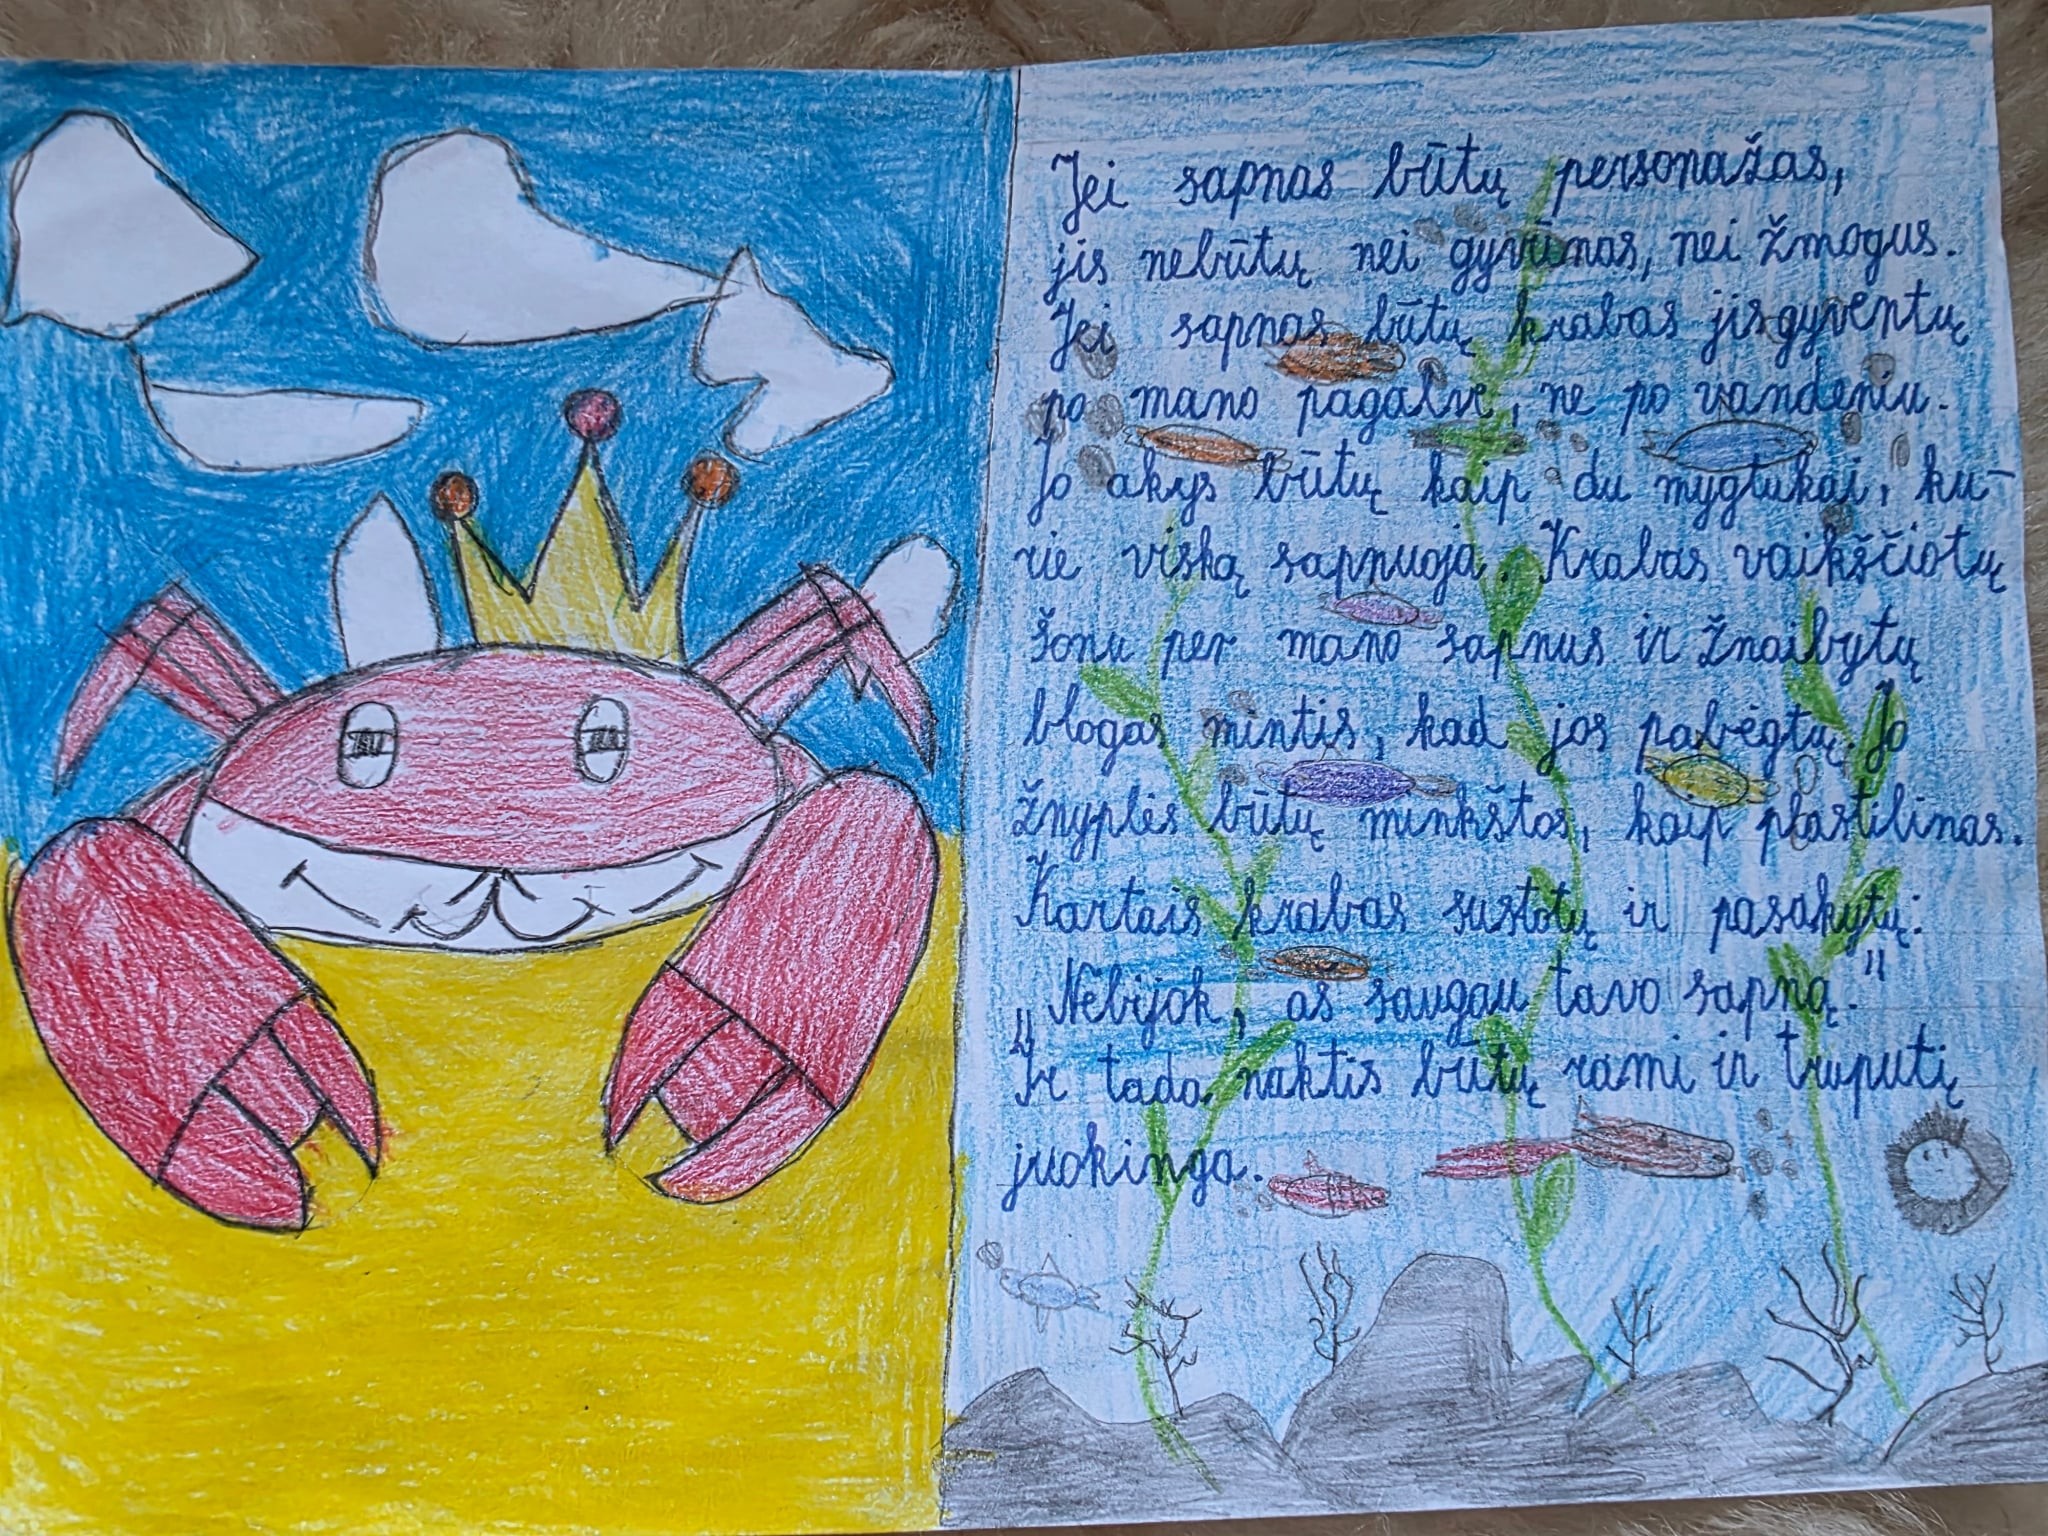 Jei sapnas būtų personažas,
jis nebūtų nei gyvūnas, nei žmogus.
Jei sapnas būtų krabas jis gyventų
po mano pagalve, ne po vandeniu.
Jo akys būtų kaip du mygtukai, ku-
rie viską sapnuoja. Krabas vaikščiotų
šonu per mano sapnus ir žnaibytų
blogas mintis, kad jos pabėgtų. Jo
žnyplės būtų minkštos, kaip plastilinas.
Kartais krabas sustotų ir pasakytų:
„Nebijok, aš saugau tavo sapną."
Ir tada naktis būtų rami ir truputį
juokinga.